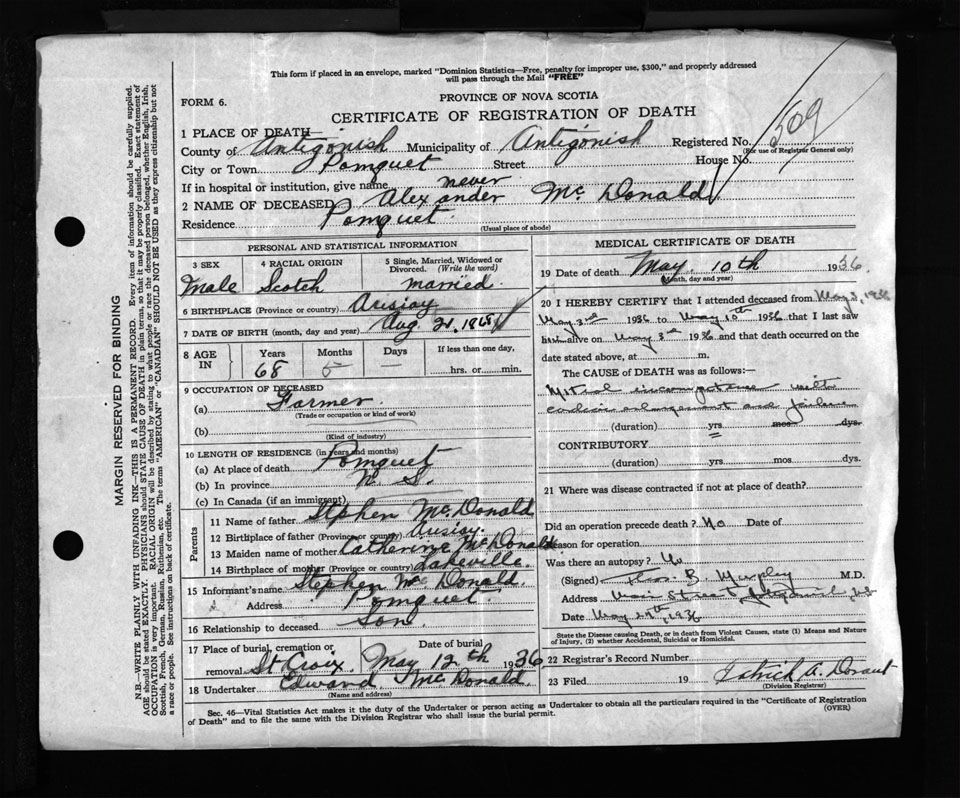 This form if placed in an envelope, marked "Dominion Statistics—Free, penalty for improper use, $300," and properly addressed
will pass through the Mail "FREE"
FORM 6.
PROVINCE OF NOVA SCOTIA
CERTIFICATE OF REGISTRATION OF DEATH
509
1 PLACE OF DEATH—
County of Antigonish Municipality of Antigonish Registered No.
(For use of Registrar General only)
City or Town Pomquet Street House No.
If in hospital or institution, give name never
2 NAME OF DECEASED Alexander Mc Donald
Residence Pomquet.
(Usual place of abode)
PERSONAL AND STATISTICAL INFORMATION
3 SEX 4 RACIAL ORIGIN 5 Single, Married, Widowed or Divorced. (Write the word)
Male Scotch married.
6 BIRTHPLACE (Province or country) Arisiay
7 DATE OF BIRTH (month, day and year) Aug
8 AGE IN Years Months Days If less than one day,
68 5 — hrs. or min.
9 OCCUPATION OF DECEASED
(a) Farmer
(Trade or occupation or kind of work)
(b)
(Kind of industry)
10 LENGTH OF RESIDENCE (in years and months)
(a) At place of death Pomquet
(b) In province N. S.
(c) In Canada (if an immigrant)
Parents
11 Name of father Stephen McDonald
12 Birthplace of father (Province or country) Arisiay
13 Maiden name of mother Catherine McDonald
14 Birthplace of mother (Province or country) Lakeville.
15 Informant's name Stephen Mc Donald.
Address Pomquet.
16 Relationship to deceased Son.
17 Place of burial, cremation or removal St Croix. Date of burial May 12th 1936
18 Undertaker Edward McDonald.
(Name and address)
MEDICAL CERTIFICATE OF DEATH
19 Date of death May. 10th 1936.
(Month, day and year)
20 I HEREBY CERTIFY that I attended deceased from May 3, 1936
May 3rd 1936 to May 10th 1936 that I last saw
h alive on May 3rd 1936 and that death occurred on the
date stated above, at m.
The CAUSE OF DEATH was as follows:—
Mitral incompetence with
cardiac enlargement and failure
(duration) yrs. mos. dys.
CONTRIBUTORY
(duration) yrs. mos. dys.
21 Where was disease contracted if not at place of death?
Did an operation precede death? No Date of
Reason for operation
Was there an autopsy? No
(Signed) B. Murphy M.D.
Address Main Street
Date May 29th, 1936
State the Disease causing Death, or in death from Violent Causes, state (1) Means and Nature
of Injury, (2) whether Accidental, Suicidal or Homicidal.
22 Registrar's Record Number
23 Filed 19 Patrick A. Dorant
(Division Registrar)
Sec. 46—Vital Statistics Act makes it the duty of the Undertaker or person acting as Undertaker to obtain all the particulars required in the "Certificate of Registration
of Death" and to file the same with the Division Registrar who shall issue the burial permit.
(OVER)
MARGIN RESERVED FOR BINDING
N.B.—WRITE PLAINLY WITH UNFADING INK—THIS IS A PERMANENT RECORD. Every item of information should be carefully supplied.
AGE should be stated EXACTLY. PHYSICIANS should STATE CAUSE OF DEATH in plain terms, so that it may be properly classified. Exact statement of
OCCUPATION is very important. RACIAL ORIGIN will be described by stating to what people or race the deceased person belonged, whether English, Irish,
Scottish, French, German, Russian, Ruthenian, etc. The terms "AMERICAN" or "CANADIAN" SHOULD NOT BE USED as they express citizenship but not
a race or people. See instructions on back of certificate.